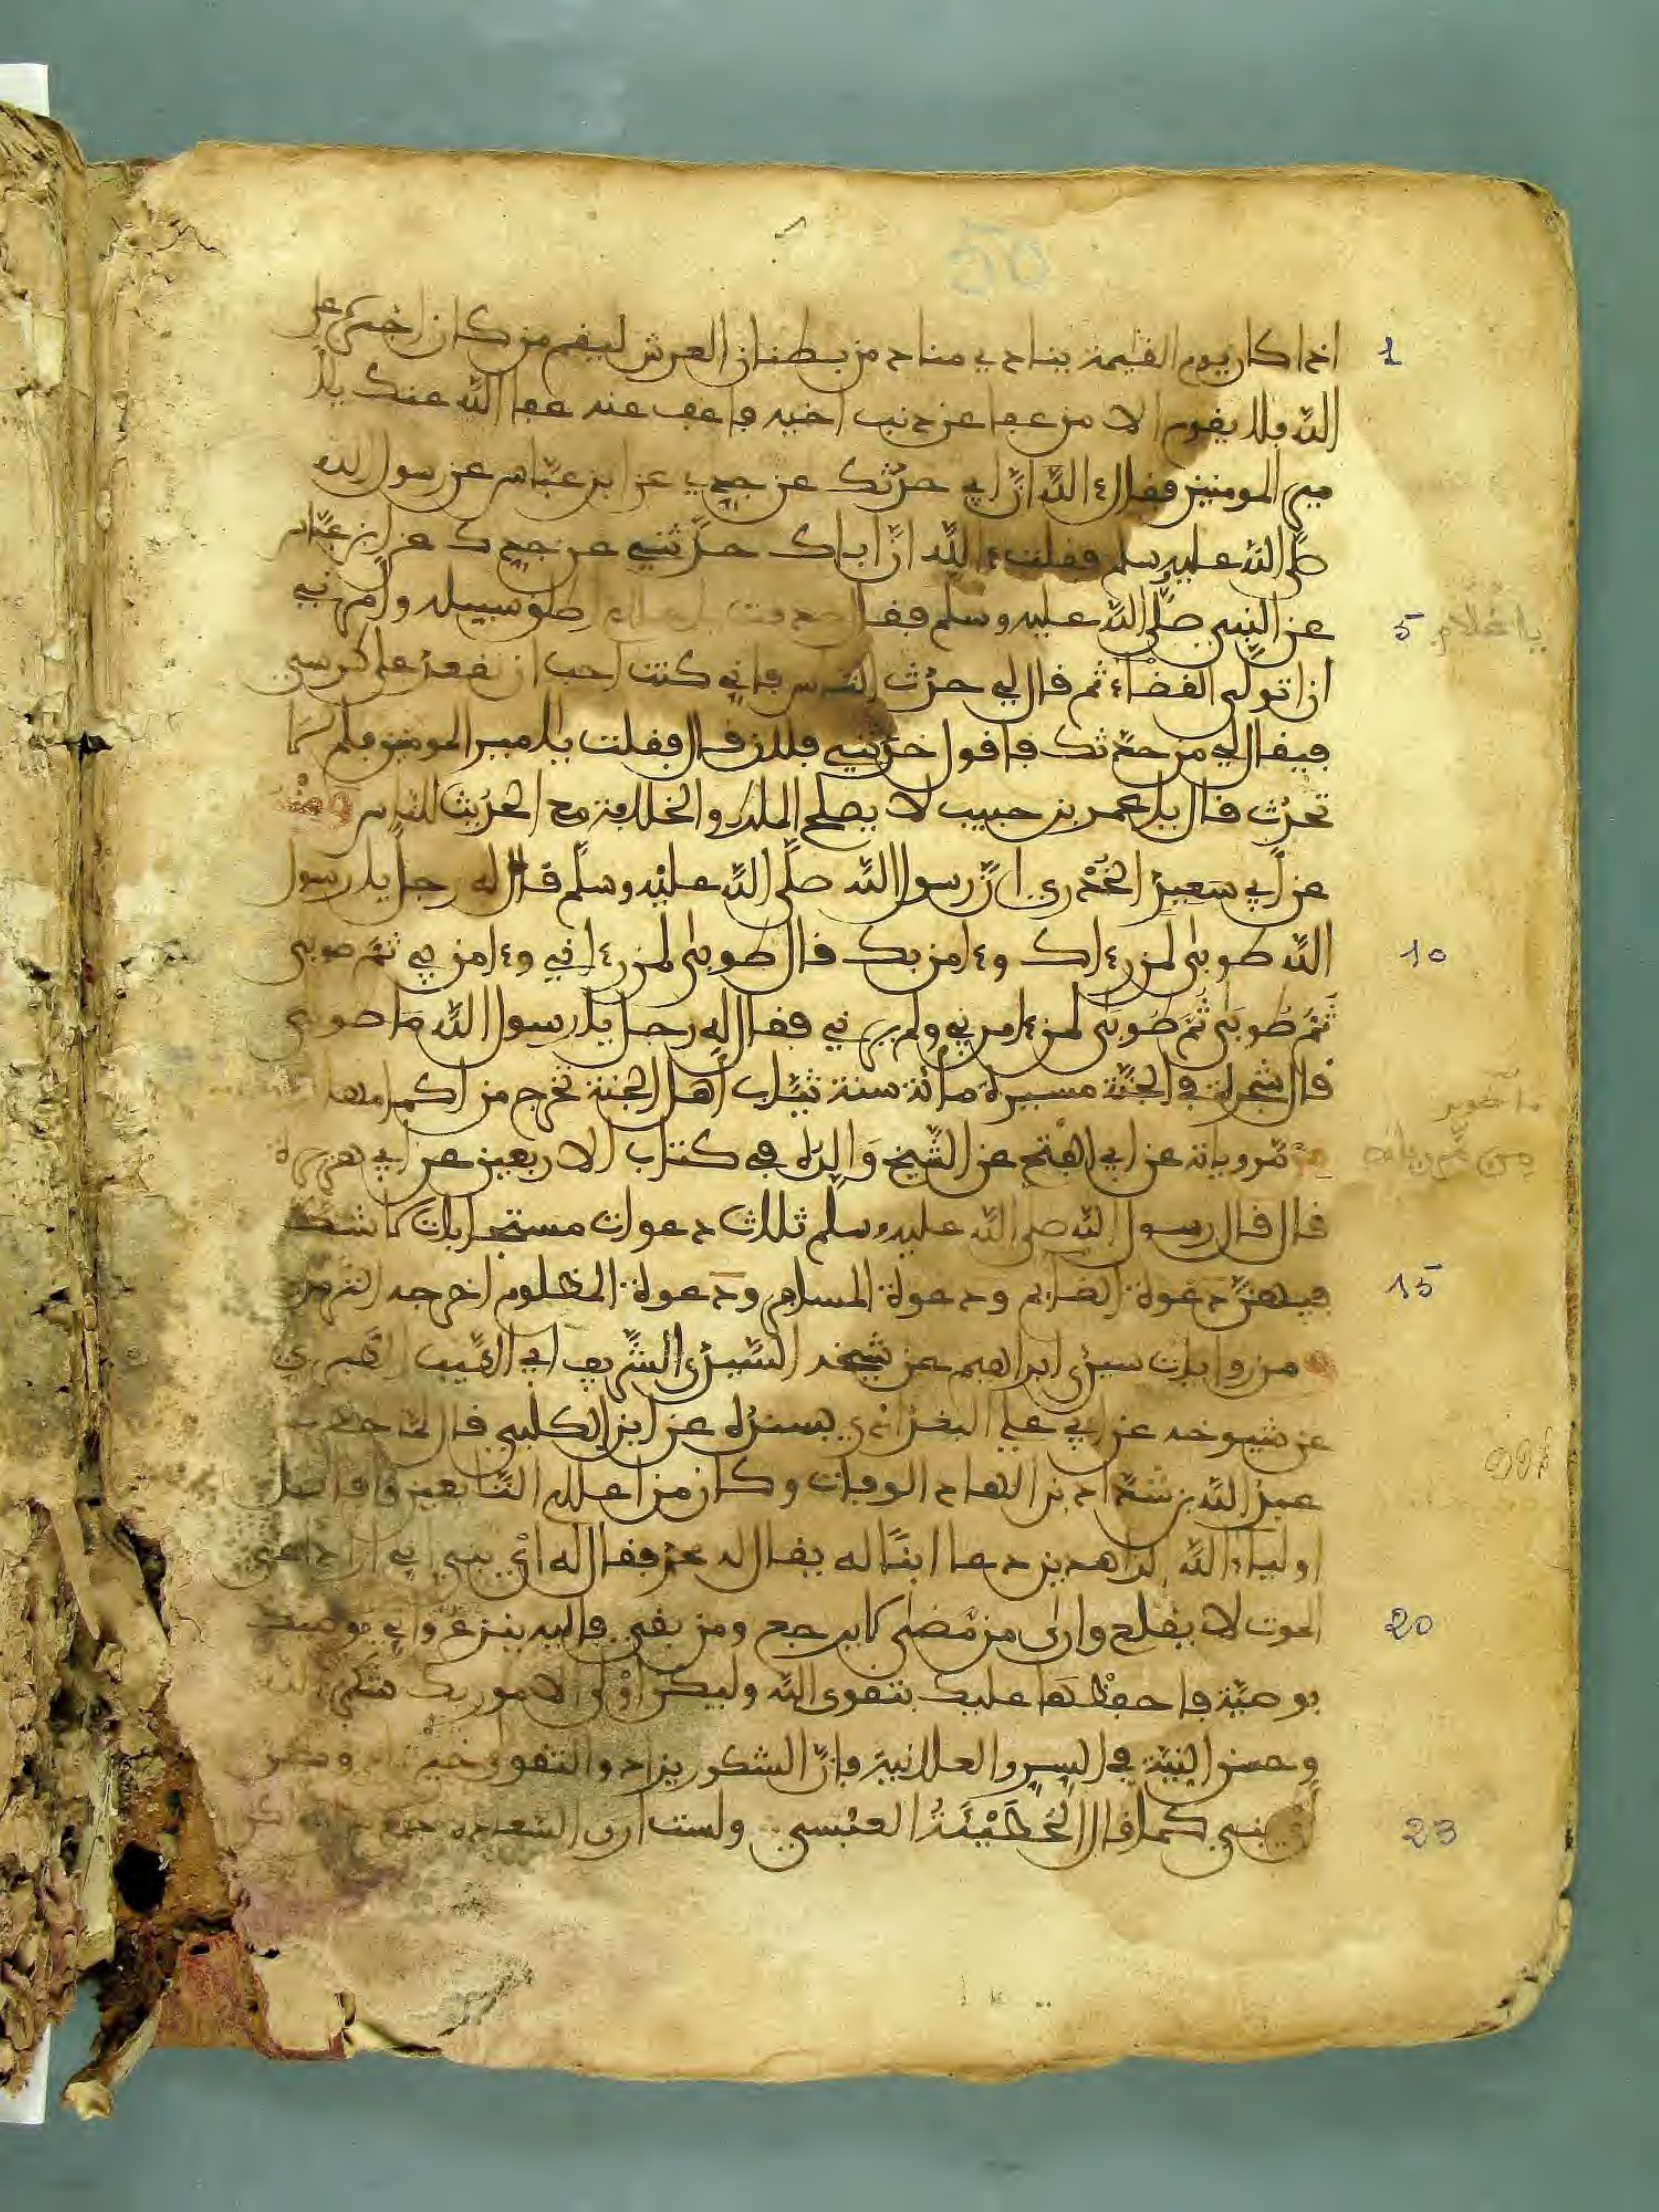 اذا كان يوم القيمة ينادي مناد من بطنان العرش ليقم من كان اجره على
الله فلا يقوم الا من عفا عن ذنب اخيه فاعف عنه عفا الله عنك يا
مير المومنين فقال ءالله ان ابي حدثك عن جدي عن ابن عباس عن رسول الله
صلى الله عليه وسلم فقلت ءالله ان اباك حدثني عن جدك عن ابن عباس
عن النبي صلى الله عليه وسلم فقال صدقت يا غلام اطلقوا سبيله وامرني
ان اتولى القضاء ثم قال لي حدث الناس فاني كنت احب ان نقعد على كرسي
فيقال لي من حدثك فاقول حدثني فلان قال فقلت يا امير المومنين فلم لا
تحدث قال يا عمر بن حبيب لا يصلح الملك والخلافة مع الحديث للناس
عن ابي سعيد الخدري ان رسول الله صلى الله عليه وسلم قال له رجل يا رسول
الله طوبى لمن رءاك وءامن بك قال طوبى لمن رءاني وءامن بي ثم طوبى
ثم طوبى ثم طوبى لمن ءامن بي ولم يرني فقال له رجل يا رسول الله ما طوبى
قال شجرة في الجنة مسيرة مائة سنة ثياب اهل الجنة تخرج من اكمامها
من مروياته عن ابي الفتح عن الشيخ والده في كتاب الاربعين عن ابي هريرة
قال قال رسول الله صلى الله عليه وسلم ثلاث دعوات مستجابات لا شك
فيهن دعوة الصايم ودعوة المسافر ودعوة المظلوم اخرجه الترمذي
من روايات سيدي ابراهيم عن شيخه السيد الشريف ابي الطيب
عن شيوخه عن ابي علي البغدادي بسنده عن ابن الكلبي قال لما حضرت
عبد الله بن شداد بن الهاد الوفات وكان من اعلام التابعين وافاضل
اولياء الله الزاهدين دعا ابنا له يقال له محمد فقال له اي بني اني ارى داعي
الموت لا يقلع وارى من مضى لا يرجع ومن بقي فاليه ينزع واني موصيك
بوصية فاحفظها عليك بتقوى الله وليكن اولى الامور بك شكر الله
وحسن النية في السر والعلانية فان الشكور يزاد والتقوى خير زاد وكن
اي بني كما قال الحطيئة العبسي ولست ارى السعادة جمع مال ولكن
يا غلام
ما طوبى
من مروياته
1
5
10
15
20
23